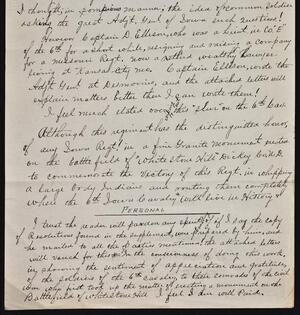 I thought, in pompous manner, the idea of common soldier
asking the great Adjt. Genl of Iowa such questions!
However Captain D. Ellison, who was a Lieut in Co "E"
of the 6th for a short while, resigning and raising a Company
for a Missouri Regt. now a retired wealthy Lawyer
living at Kansas City Mo. Captain Ellison, wrote the
Adjt Genl at Desmoines, and the attached letter will
explain matters better than I can write them!
I feel much elated over this "slur" on the 6th Cav
Although this regiment has the distinguished honor,
of any Iowa Regt. in a fine Granite monument erected
on the battlefield of "White Stone Hill" Dickey Co N.D.
to commemorate the victory of this Regt. in whipping
a large body Indians and routing them completely
where the "6th Iowa Cavalry" will live in History
PERSONAL
I trust the reader will pardon any if I say the copy
of Resolutions found in the supplement, were prepared by him, and
he mailed to all the of aftermentioned, the attached letters
will vouch for this in the consciousness of doing this work,
in showing the sentiment of appreciation and gratitude,
of the soldiers of the 6th Cavalry, to their comrades of the civil
war who first took up the matter of erecting a monument on the
Battlefield of Whitestone Hill I feel I am well Paid.